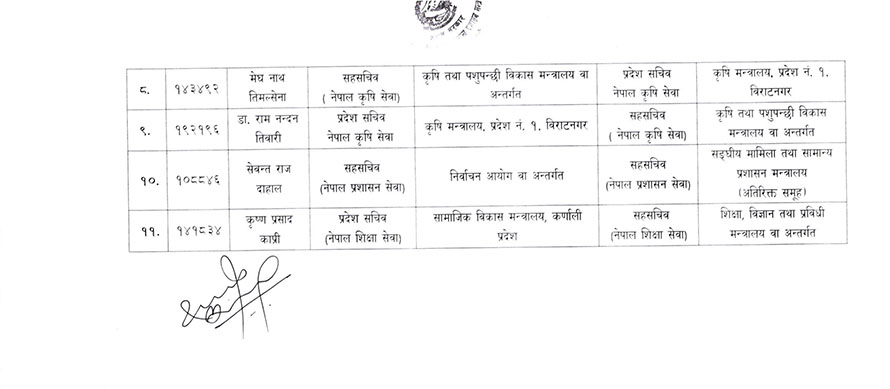 ८. १४३४९२ मेघ नाथ तिमल्सेना सहसचिव ( नेपाल कृषि सेवा) कृषि तथा पशुपन्छी विकास मन्त्रालय वा अन्तर्गत प्रदेश सचिव नेपाल कृषि सेवा कृषि मन्त्रालय, प्रदेश नं. १. विराटनगर
९. १९२१९६ डा. राम नन्दन तिवारी प्रदेश सचिव नेपाल कृषि सेवा कृषि मन्त्रालय, प्रदेश नं. १. विराटनगर सहसचिव ( नेपाल कृषि सेवा) कृषि तथा पशुपन्छी विकास मन्त्रालय वा अन्तर्गत
१०. १०८८४६ सेवन्त राज दाहाल सहसचिव (नेपाल प्रशासन सेवा) निर्वाचन आयोग वा अन्तर्गत सहसचिव (नेपाल प्रशासन सेवा) सङ्घीय मामिला तथा सामान्य प्रशासन मन्त्रालय (अतिरिक्त समूह)
११. १४१८३४ कृष्ण प्रसाद काप्री प्रदेश सचिव (नेपाल शिक्षा सेवा) सामाजिक विकास मन्त्रालय, कर्णाली प्रदेश सहसचिव (नेपाल शिक्षा सेवा) शिक्षा, विज्ञान तथा प्रविधी मन्त्रालय वा अन्तर्गत